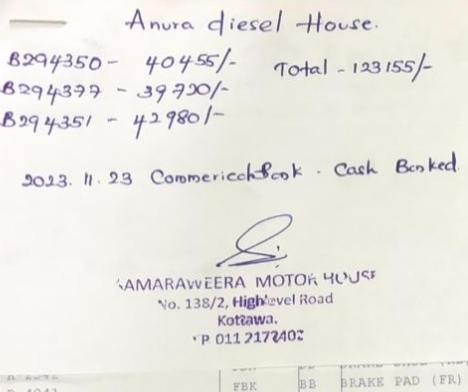 Anura diesel House.
B294350 - 40455/- Total - 123155/-
B294377 - 39720/-
B294351 - 42980/-
2023. 11. 23 Commericch Book . Cash Banked.
SAMARAWEERA MOTOR HOUSE
No. 138/2, Highlevel Road
Kottawa.
TP 011 2172402
FBK BB BRAKE PAD (FR)